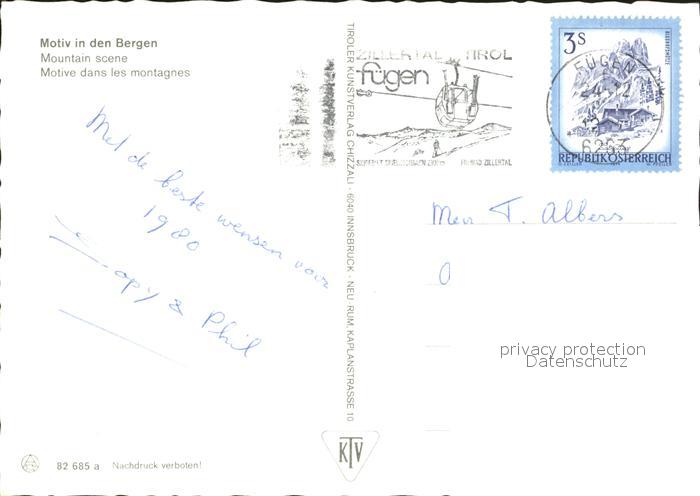 Motiv in den Bergen
Mountain scene
Motive dans les montagnes
Met de beste wensen voor
1980
Copy & Phil
TIROLER KUNSTVERLAG CHIZZALI · 6040 INNSBRUCK - NEU RUM, KAPLANSTRASSE 10
ZILLERTAL TIROL
fügen
3 S
FÜGEN
6263
REPUBLIK ÖSTERREICH
T. Albers
privacy protection
Datenschutz
KTV
82 685 a Nachdruck verboten!